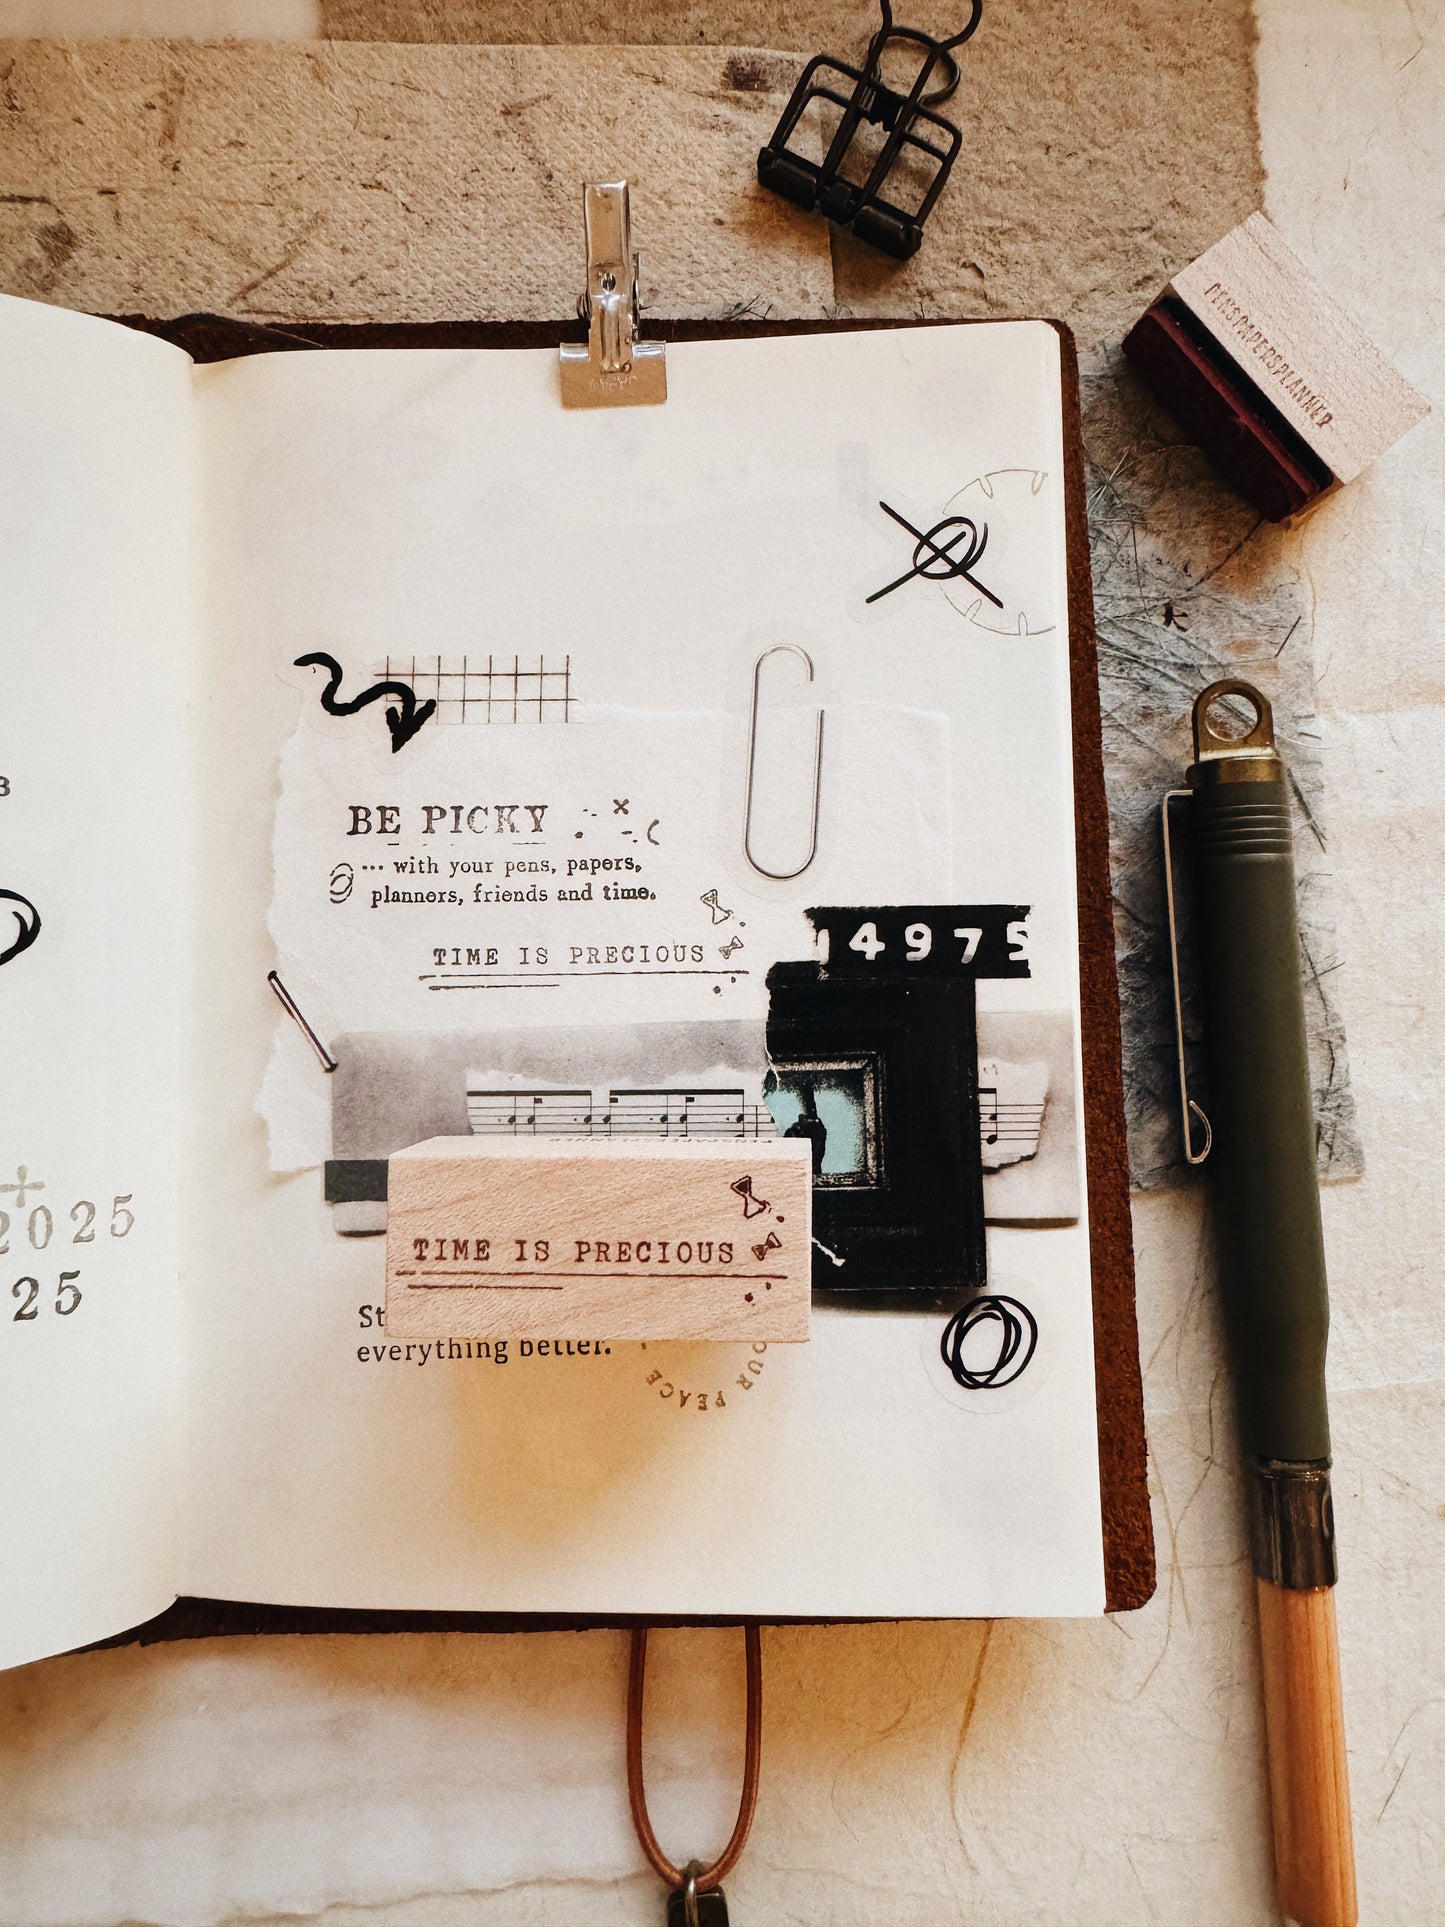 PENSPAPERSPLANNER
BE PICKY
... with your pens, papers,
planners, friends and time.
TIME IS PRECIOUS
4975
PENSPAPERSPLANNER
TIME IS PRECIOUS
everything better.
OUR PEACE
2025
25